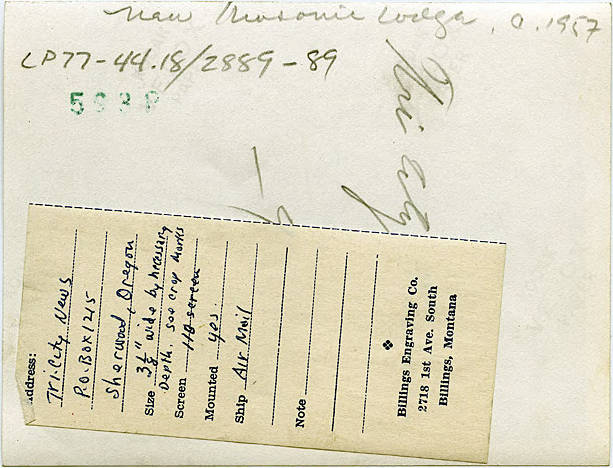 New Masonic Lodge, c. 1957
LP77-44.18/2889-89
Tri City
Address:
Tri. City News
P.O. Box 1215
Sherwood, Oregon
Size 3 1/8" wide by necessary
Depth. see crop marks
Screen 110 screen
Mounted yes.
Ship Air Mail
Note
Billings Engraving Co.
2718 1st Ave. South
Billings, Montana